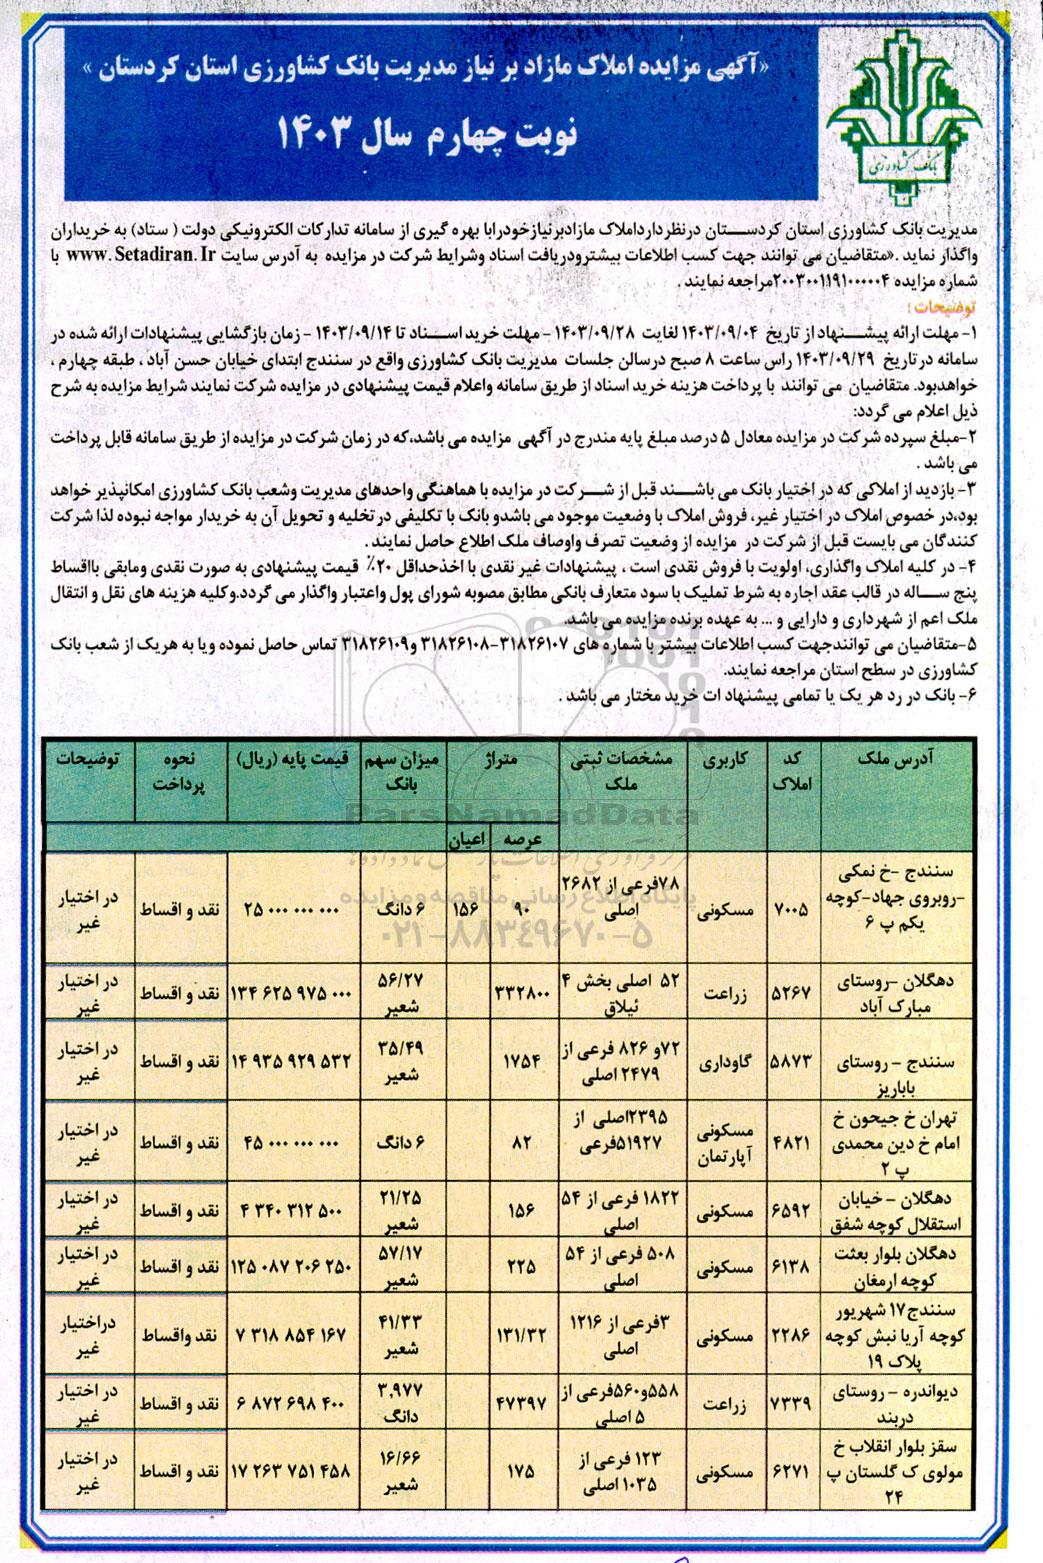 «آگهی مزایده املاک مازاد بر نیاز مدیریت بانک کشاورزی استان کردستان »
نوبت چهارم سال ۱۴۰۳
بانک کشاورزی
مدیریت بانک کشاورزی استان کردستان درنظرداردااملاک مازادبرنیازخودرابا بهره گیری از سامانه تدارکات الکترونیکی دولت ( ستاد) به خریداران
واگذار نماید .«متقاضیان می توانند جهت کسب اطلاعات بیشترودریافت اسناد وشرایط شرکت در مزایده به آدرس سایت www.Setadiran.Ir با
شماره مزایده ۲۰۰۳۰۰۱۱۹۱۰۰۰۰۰۴مراجعه نمایند .
توضیحات :
۱- مهلت ارائه پیشنهاد از تاریخ ۱۴۰۳/۰۹/۰۴ لغایت ۱۴۰۳/۰۹/۲۸ - مهلت خرید اسناد تا ۱۴۰۳/۰۹/۱۴ - زمان بازگشایی پیشنهادات ارائه شده در
سامانه درتاریخ ۱۴۰۳/۰۹/۲۹ راس ساعت ۸ صبح درسالن جلسات مدیریت بانک کشاورزی واقع در سنندج ابتدای خیابان حسن آباد ، طبقه چهارم ،
خواهدبود. متقاضیان می توانند با پرداخت هزینه خرید اسناد از طریق سامانه واعلام قیمت پیشنهادی در مزایده شرکت نمایند شرایط مزایده به شرح
ذیل اعلام می گردد:
۲-مبلغ سپرده شرکت در مزایده معادل ۵ درصد مبلغ پایه مندرج در آگهی مزایده می باشد،که در زمان شرکت در مزایده از طریق سامانه قابل پرداخت
می باشد .
۳- بازدید از املاکی که در اختیار بانک می باشند قبل از شرکت در مزایده با هماهنگی واحدهای مدیریت وشعب بانک کشاورزی امکانپذیر خواهد
بود،در خصوص املاک در اختیار غیر، فروش املاک با وضعیت موجود می باشدو بانک با تکلیفی در تخلیه و تحویل آن به خریدار مواجه نبوده لذا شرکت
کنندگان می بایست قبل از شرکت در مزایده از وضعیت تصرف واوصاف ملک اطلاع حاصل نمایند .
۴- در کلیه املاک واگذاری، اولویت با فروش نقدی است ، پیشنهادات غیر نقدی با اخذحداقل ۲۰٪ قیمت پیشنهادی به صورت نقدی ومابقی بااقساط
پنج ساله در قالب عقد اجاره به شرط تملیک با سود متعارف بانکی مطابق مصوبه شورای پول واعتبار واگذار می گردد.وکلیه هزینه های نقل و انتقال
ملک اعم از شهرداری و دارایی و ... به عهده برنده مزایده می باشد.
۵-متقاضیان می توانندجهت کسب اطلاعات بیشتر با شماره های ۳۱۸۲۶۱۰۷-۳۱۸۲۶۱۰۸ و۳۱۸۲۶۱۰۹ تماس حاصل نموده ویا به هریک از شعب بانک
کشاورزی در سطح استان مراجعه نمایند.
۶- بانک در رد هر یک یا تمامی پیشنهاد ات خرید مختار می باشد .
آدرس ملک کد املاک کاربری مشخصات ثبتی ملک متراژ میزان سهم بانک قیمت پایه (ریال) نحوه پرداخت توضیحات
عرصه اعیان
سنندج -خ نمکی -روبروی جهاد-کوچه یکم پ ۶ ۷۰۰۵ مسکونی ۷۸فرعی از ۲۶۸۲ اصلی ۹۰ ۱۵۶ ۶ دانگ ۲۵ ۰۰۰ ۰۰۰ ۰۰۰ نقد و اقساط در اختیار غیر
دهگلان -روستای مبارک آباد ۵۲۶۷ زراعت ۵۲ اصلی بخش ۴ ئیلاق ۳۳۲۸۰۰ ۵۶/۲۷ شعیر ۱۳۴ ۶۲۵ ۹۷۵ ۰۰۰ نقد و اقساط در اختیار غیر
سنندج - روستای باباریز ۵۸۷۳ گاوداری ۷۲و ۸۲۶ فرعی از ۲۴۷۹ اصلی ۱۷۵۴ ۳۵/۴۹ شعیر ۱۴ ۹۳۵ ۹۲۹ ۵۳۲ نقد و اقساط در اختیار غیر
تهران خ جیحون خ امام خ دین محمدی پ ۲ ۴۸۲۱ مسکونی آپارتمان ۲۳۹۵اصلی از ۵۱۹۲۷فرعی ۸۲ ۶ دانگ ۴۵ ۰۰۰ ۰۰۰ ۰۰۰ نقد و اقساط در اختیار غیر
دهگلان - خیابان استقلال کوچه شفق ۶۵۹۲ مسکونی ۱۸۲۲ فرعی از ۵۴ اصلی ۱۵۶ ۲۱/۲۵ شعیر ۴ ۳۴۰ ۳۱۲ ۵۰۰ نقد و اقساط در اختیار غیر
دهگلان بلوار بعثت کوچه ارمغان ۶۱۳۸ مسکونی ۵۰۸ فرعی از ۵۴ اصلی ۲۲۵ ۵۷/۱۷ شعیر ۱۲۵ ۰۸۷ ۲۰۶ ۲۵۰ نقد و اقساط در اختیار غیر
سنندج۱۷ شهریور کوچه آریا نبش کوچه پلاک ۱۹ ۲۲۸۶ مسکونی ۳فرعی از ۱۲۱۶ اصلی ۱۳۱/۳۲ ۴۱/۳۳ شعیر ۷ ۳۱۸ ۸۵۴ ۱۶۷ نقد واقساط دراختیار غیر
دیواندره - روستای دربند ۷۳۳۹ زراعت ۵۵۸و۵۶۰فرعی از ۵ اصلی ۴۷۳۹۷ ۳,۹۷۷ دانگ ۶ ۸۷۲ ۶۹۸ ۴۰۰ نقد و اقساط در اختیار غیر
سقز بلوار انقلاب خ مولوی ک گلستان پ ۲۴ ۶۲۷۱ مسکونی ۱۲۳ فرعی از ۱۰۳۵ اصلی ۱۷۵ ۱۶/۶۶ شعیر ۱۷ ۲۶۳ ۷۵۱ ۴۵۸ نقد و اقساط در اختیار غیر
ParsNamadData
پایگاه اطلاع رسانی مناقصه و مزایده
۰۲۱-۸۸۳۴۹۶۷۰-۵